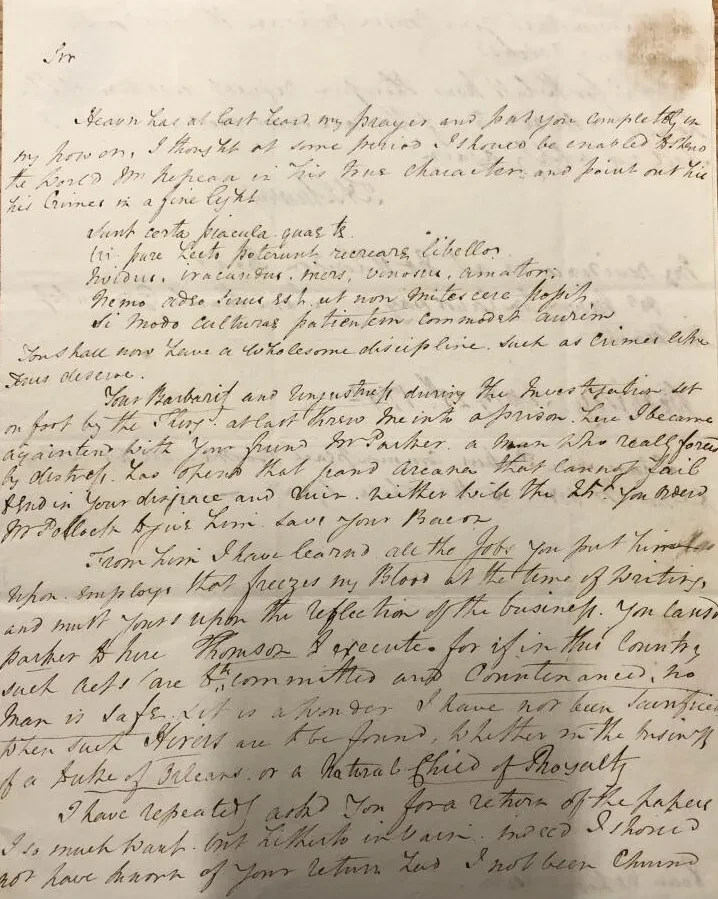 Sir
Heaven has at last heard my prayer and put you completely in
my power, I thought at some period I should be enabled to shew
the World Mr Repean in his true character and point out his
his Crimes in a fine light
Sunt certa piacula quae te
ter pure Lecto poterunt recreare libello.
Invidus, iracundus, iners, vinosus, amator;
Nemo adeo ferus est, ut non mitescere possit
Si modo culturae patientem commodet aurem
You shall now have a wholesome discipline such as Crimes like
yours deserve.
Your Barbarity and Unjustness during the Investigation set
on foot by the at last threw me into a prison. here I became
acquainted with Your friend Mr Parker. a man who really forced
by distress has opend that pand Arcana that cannot fail
to End in Your disgrace and ruin. neither will the 25£ You orderd
Mr Pollock to give him save your Bacon
From him I have learnd all the Jobs You put him
upon. employs that freezes my Blood at the time of writing,
and must yours upon the reflection of the business. You causd
parker to hire Thomson to execute. for if in this Country
such acts are to be committed and Countenanced, no
Man is safe. it is a wonder I have not been sacrificed
when such Hirers are to be found, whether in the business
of a Duke of Orleans. or a Natural Child of Royalty
I have repeatedly askd You for a return of the papers
I so much want. but hitherto in vain. indeed I should
not have known of your return had I not been